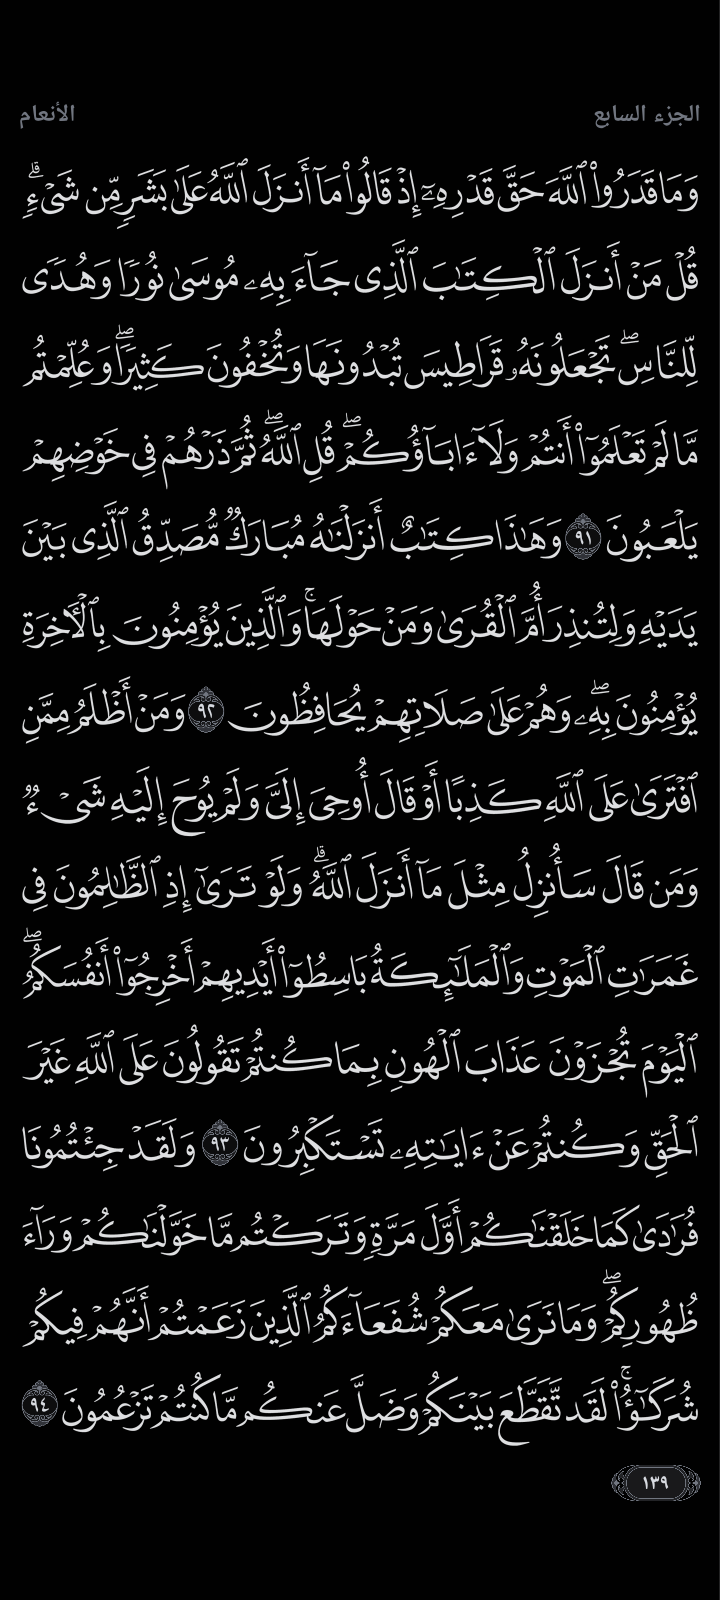 الجزء السابع
الأنعام
وَمَا قَدَرُوا۟ ٱللَّهَ حَقَّ قَدْرِهِۦٓ إِذْ قَالُوا۟ مَآ أَنزَلَ ٱللَّهُ عَلَىٰ بَشَرٍ مِّن شَىْءٍ ۗ
قُلْ مَنْ أَنزَلَ ٱلْكِتَـٰبَ ٱلَّذِى جَآءَ بِهِۦ مُوسَىٰ نُورًا وَهُدًى
لِّلنَّاسِ ۖ تَجْعَلُونَهُۥ قَرَاطِيسَ تُبْدُونَهَا وَتُخْفُونَ كَثِيرًا ۖ وَعُلِّمْتُم
مَّا لَمْ تَعْلَمُوٓا۟ أَنتُمْ وَلَآ ءَابَآؤُكُمْ ۖ قُلِ ٱللَّهُ ۖ ثُمَّ ذَرْهُمْ فِى خَوْضِهِمْ
يَلْعَبُونَ ٩١ وَهَـٰذَا كِتَـٰبٌ أَنزَلْنَـٰهُ مُبَارَكٌ مُّصَدِّقُ ٱلَّذِى بَيْنَ
يَدَيْهِ وَلِتُنذِرَ أُمَّ ٱلْقُرَىٰ وَمَنْ حَوْلَهَا ۚ وَٱلَّذِينَ يُؤْمِنُونَ بِٱلْـَٔاخِرَةِ
يُؤْمِنُونَ بِهِۦ ۖ وَهُمْ عَلَىٰ صَلَاتِهِمْ يُحَافِظُونَ ٩٢ وَمَنْ أَظْلَمُ مِمَّنِ
ٱفْتَرَىٰ عَلَى ٱللَّهِ كَذِبًا أَوْ قَالَ أُوحِىَ إِلَىَّ وَلَمْ يُوحَ إِلَيْهِ شَىْءٌ
وَمَن قَالَ سَأُنزِلُ مِثْلَ مَآ أَنزَلَ ٱللَّهُ ۗ وَلَوْ تَرَىٰٓ إِذِ ٱلظَّـٰلِمُونَ فِى
غَمَرَٰتِ ٱلْمَوْتِ وَٱلْمَلَـٰٓئِكَةُ بَاسِطُوٓا۟ أَيْدِيهِمْ أَخْرِجُوٓا۟ أَنفُسَكُمُ ۖ
ٱلْيَوْمَ تُجْزَوْنَ عَذَابَ ٱلْهُونِ بِمَا كُنتُمْ تَقُولُونَ عَلَى ٱللَّهِ غَيْرَ
ٱلْحَقِّ وَكُنتُمْ عَنْ ءَايَـٰتِهِۦ تَسْتَكْبِرُونَ ٩٣ وَلَقَدْ جِئْتُمُونَا
فُرَٰدَىٰ كَمَا خَلَقْنَـٰكُمْ أَوَّلَ مَرَّةٍ وَتَرَكْتُم مَّا خَوَّلْنَـٰكُمْ وَرَآءَ
ظُهُورِكُمْ ۖ وَمَا نَرَىٰ مَعَكُمْ شُفَعَآءَكُمُ ٱلَّذِينَ زَعَمْتُمْ أَنَّهُمْ فِيكُمْ
شُرَكَـٰٓؤُا۟ ۚ لَقَد تَّقَطَّعَ بَيْنَكُمْ وَضَلَّ عَنكُم مَّا كُنتُمْ تَزْعُمُونَ ٩٤
١٣٩